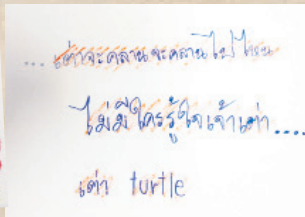 ... เต่าจะคลานจะคลานไปไหน
ไม่มีใครรู้ใจเจ้าเต่า....
เต่า turtle